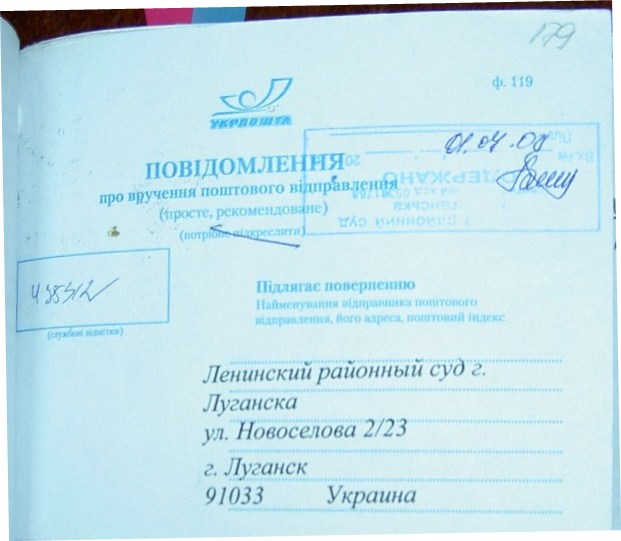 179
ф. 119
УКРПОШТА
ПОВІДОМЛЕННЯ
про вручення поштового відправлення
(просте, рекомендоване)
(потрібне підкреслити)
(службові відмітки)
Підлягає поверненню
Найменування відправника поштового
відправлення, його адреса, поштовий індекс
Ленинский районный суд г.
Луганска
ул. Новоселова 2/23
г. Луганск
91033 Украина